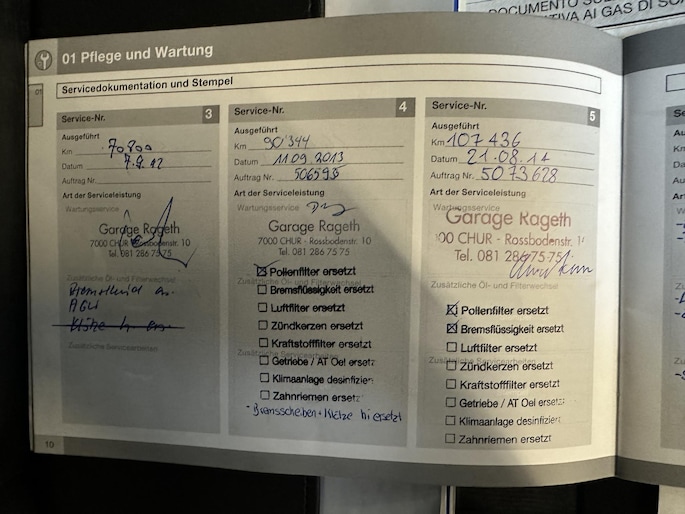 DOCUMENTO SU
TIVA AI GAS DI SC
01 Pflege und Wartung
01
Servicedokumentation und Stempel
Service-Nr. 3
Ausgeführt
Km
Datum 7.9.12
Auftrag Nr.
Art der Serviceleistung
Wartungsservice
Garage Rageth
7000 CHUR - Rossbodenstr. 10
Tel. 081 286 75 75
Zusätzliche Öl- und Filterwechsel
Zusätzliche Servicearbeiten
Service-Nr. 4
Ausgeführt
Km 90'344
Datum 11.09.2013
Auftrag Nr. 506593
Art der Serviceleistung
Wartungsservice
Garage Rageth
7000 CHUR - Rossbodenstr. 10
Tel. 081 286 75 75
Pollenfilter ersetzt
Zusätzliche Öl- und Filterwechsel
Bremsflüssigkeit ersetzt
Luftfilter ersetzt
Zündkerzen ersetzt
Kraftstofffilter ersetzt
Zusätzliche Servicearbeiten
Getriebe / AT Oel ersetzt
Klimaanlage desinfizier
Zahnriemen ersetz
- Bremsscheiben + Klötze hi ersetzt
Service-Nr. 5
Ausgeführt
Km 107436
Datum 21.08.14
Auftrag Nr. 5073628
Art der Serviceleistung
Wartungsservice
Garage Rageth
00 CHUR - Rossbodenstr. 1
Tel. 081 286 75 75
Zusätzliche Öl- und Filterwechsel
Pollenfilter ersetzt
Bremsflüssigkeit ersetzt
Luftfilter ersetzt
Zusätzliche Servicearbeiten
Zündkerzen ersetzt
Kraftstofffilter ersetzt
Getriebe / AT Oel ersetz
Klimaanlage desinfizier
Zahnriemen ersetzt
10